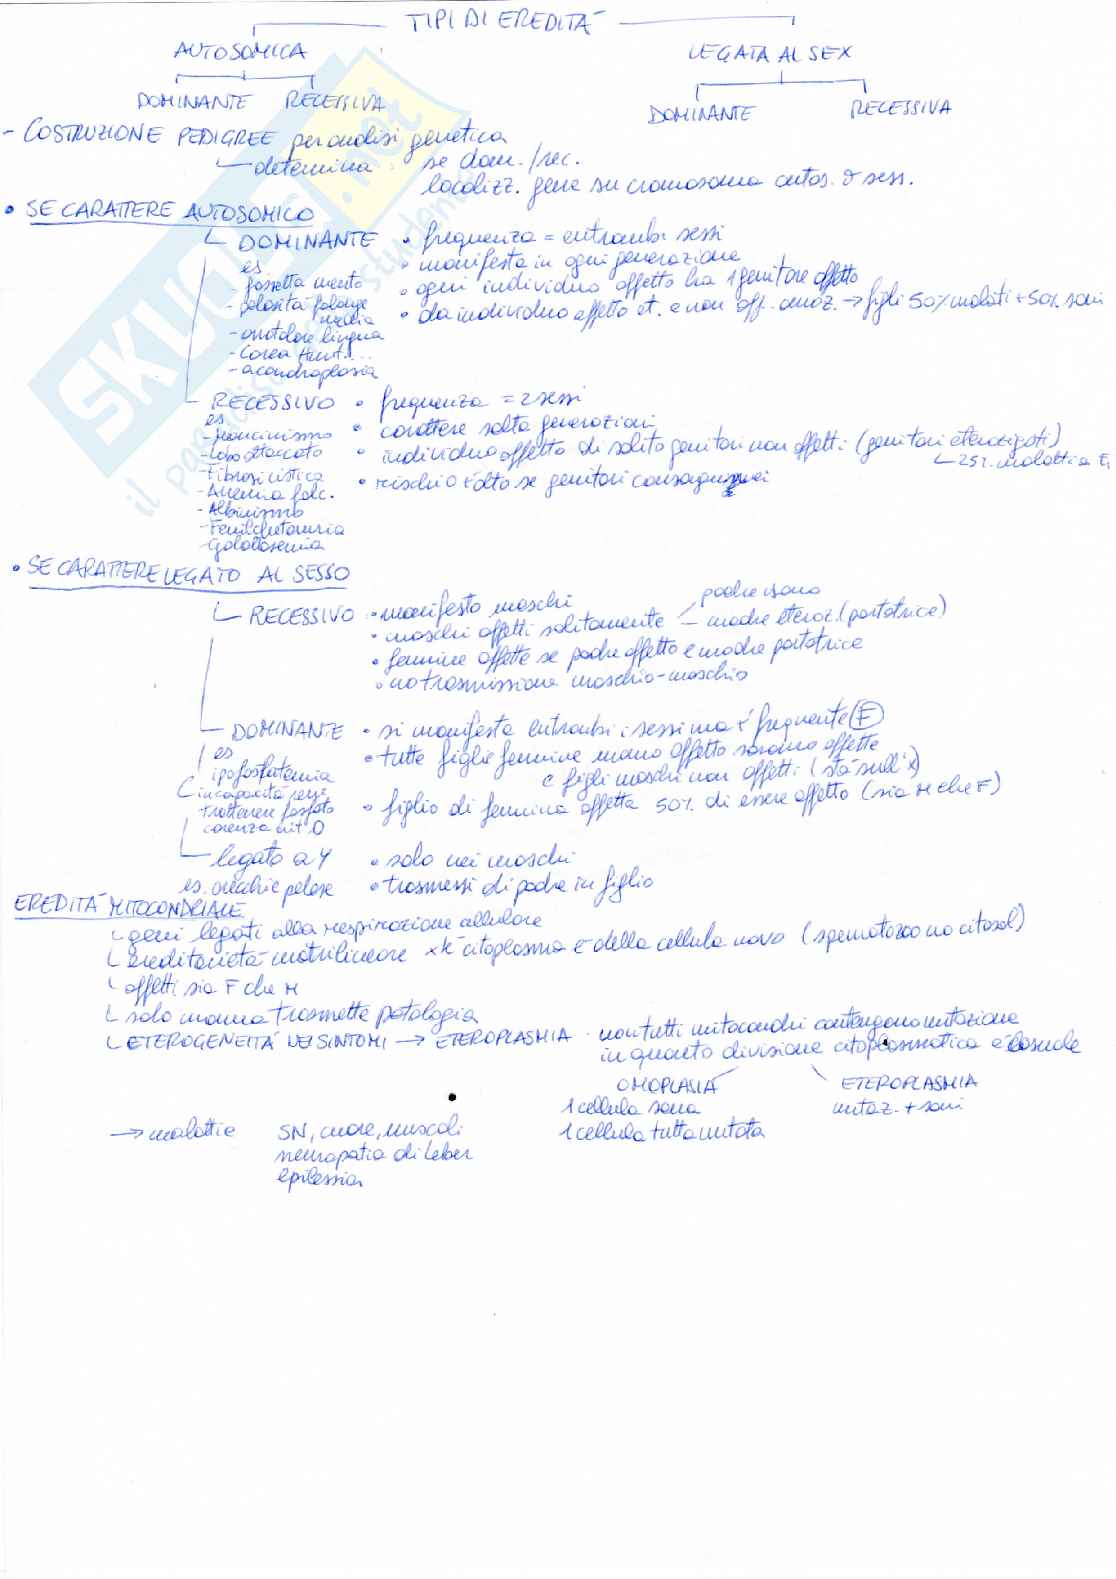 TIPI DI EREDITÀ
AUTOSOMICA
LEGATA AL SEX
DOMINANTE RECESSIVA
DOMINANTE RECESSIVA
- COSTRUZIONE PEDIGREE per analisi genetica
determina se dom./rec.
localizz. gene su cromosoma autos. o sess.
• SE CARATTERE AUTOSOMICO
DOMINANTE • frequenza = entrambi sessi
es • manifesta in ogni generazione
- fossetta mento • ogni individuo affetto ha 1 genitore affetto
- pelosità falange media • da individuo affetto et. e non aff. omoz. → figli 50% malati + 50% sani
- arrotolare lingua
- Corea Hunt...
- acondroplasia
RECESSIVO • frequenza = 2 sessi
es • carattere salta generazioni
- mancinismo • individuo affetto di solito genitori non affetti (genitori eterozigoti)
- lobo attaccato 25% malattia
- Fibrosi cistica • rischio + alto se genitori consanguinei
- Anemia falc.
- Albinismo
- Fenilchetonuria
- Galattosemia
• SE CARATTERE LEGATO AL SESSO
padre sano
RECESSIVO • manifesto maschi
• maschi affetti solitamente – madre eteroz. (portatrice)
• femmine affette se padre affetto e madre portatrice
• no trasmissione maschio-maschio
DOMINANTE • si manifesta entrambi i sessi ma + frequente F
es • tutte figlie femmine uomo affetto saranno affette
ipofosfatemia e figli maschi non affetti (sta sull'X)
incapacità reni
trattenere fosfato • figlio di femmina affetta 50% di essere affetto (sia M che F)
carenza vit. D
legato a Y • solo nei maschi
es. orecchie pelose • trasmessi di padre in figlio
EREDITÀ MITOCONDRIALE
geni legati alla respirazione cellulare
ereditarietà matrilineare xk citoplasma è della cellula uovo (spermatozoo no citosol)
affetti sia F che M
solo mamma trasmette patologia
ETEROGENEITÀ NEI SINTOMI → ETEROPLASMIA non tutti mitocondri contengono mutazione
in quanto divisione citoplasmatica è casuale
OMOPLASIA ETEROPLASMIA
1 cellula sana mutaz. + sani
→ malattie SN, cuore, muscoli 1 cellula tutta mutata
neuropatia di Leber
epilessia
SKUOLA.net
il paradiso dello studente